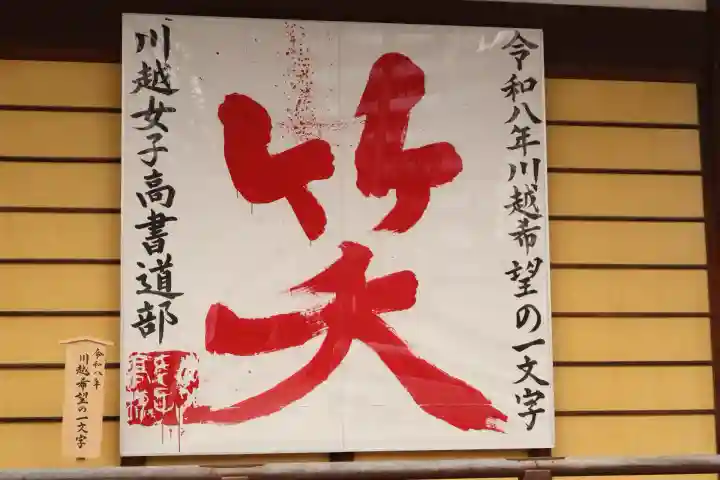 令和八年川越希望の一文字
笑
川越女子高書道部
令和八年
川越希望の一文字